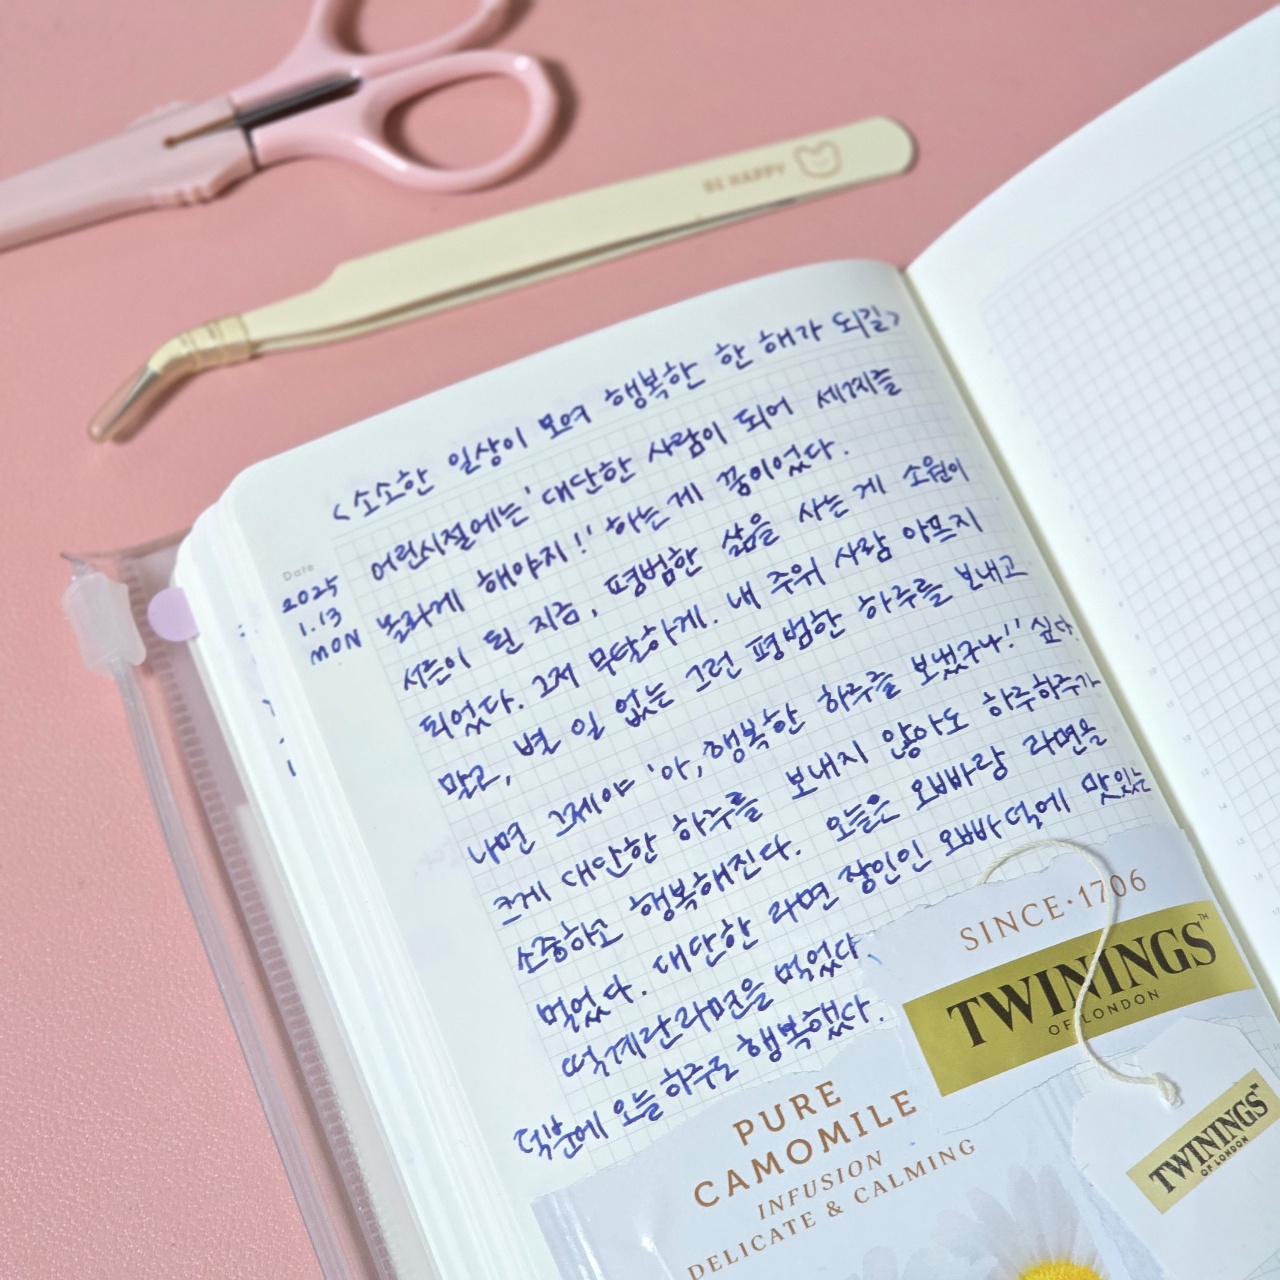 BE HAPPY
<소소한 일상이 모여 행복한 한 해가 되길>
Date
2025
1.13
MON
어린시절에는 '대단한 사람이 되어 세계를
놀라게 해야지!' 하는 게 꿈이었다.
서른이 된 지금, 평범한 삶을 사는 게 소원이
되었다. 그저 무탈하게. 내 주위 사람 아프지
말고, 별 일 없는 그런 평범한 하루를 보내고
나면 그제야 '아, 행복한 하루를 보냈구나!' 싶다.
크게 대단한 하루를 보내지 않아도 하루하루가
소중하고 행복해진다. 오늘은 오빠랑 라면을
먹었다. 대단한 라면 장인인 오빠 덕에 맛있는
떡계란라면을 먹었다.
덕분에 오늘 하루도 행복했다.
SINCE·1706
TWININGS™
OF LONDON
PURE
CAMOMILE
INFUSION
DELICATE & CALMING
TWININGS™
OF LONDON